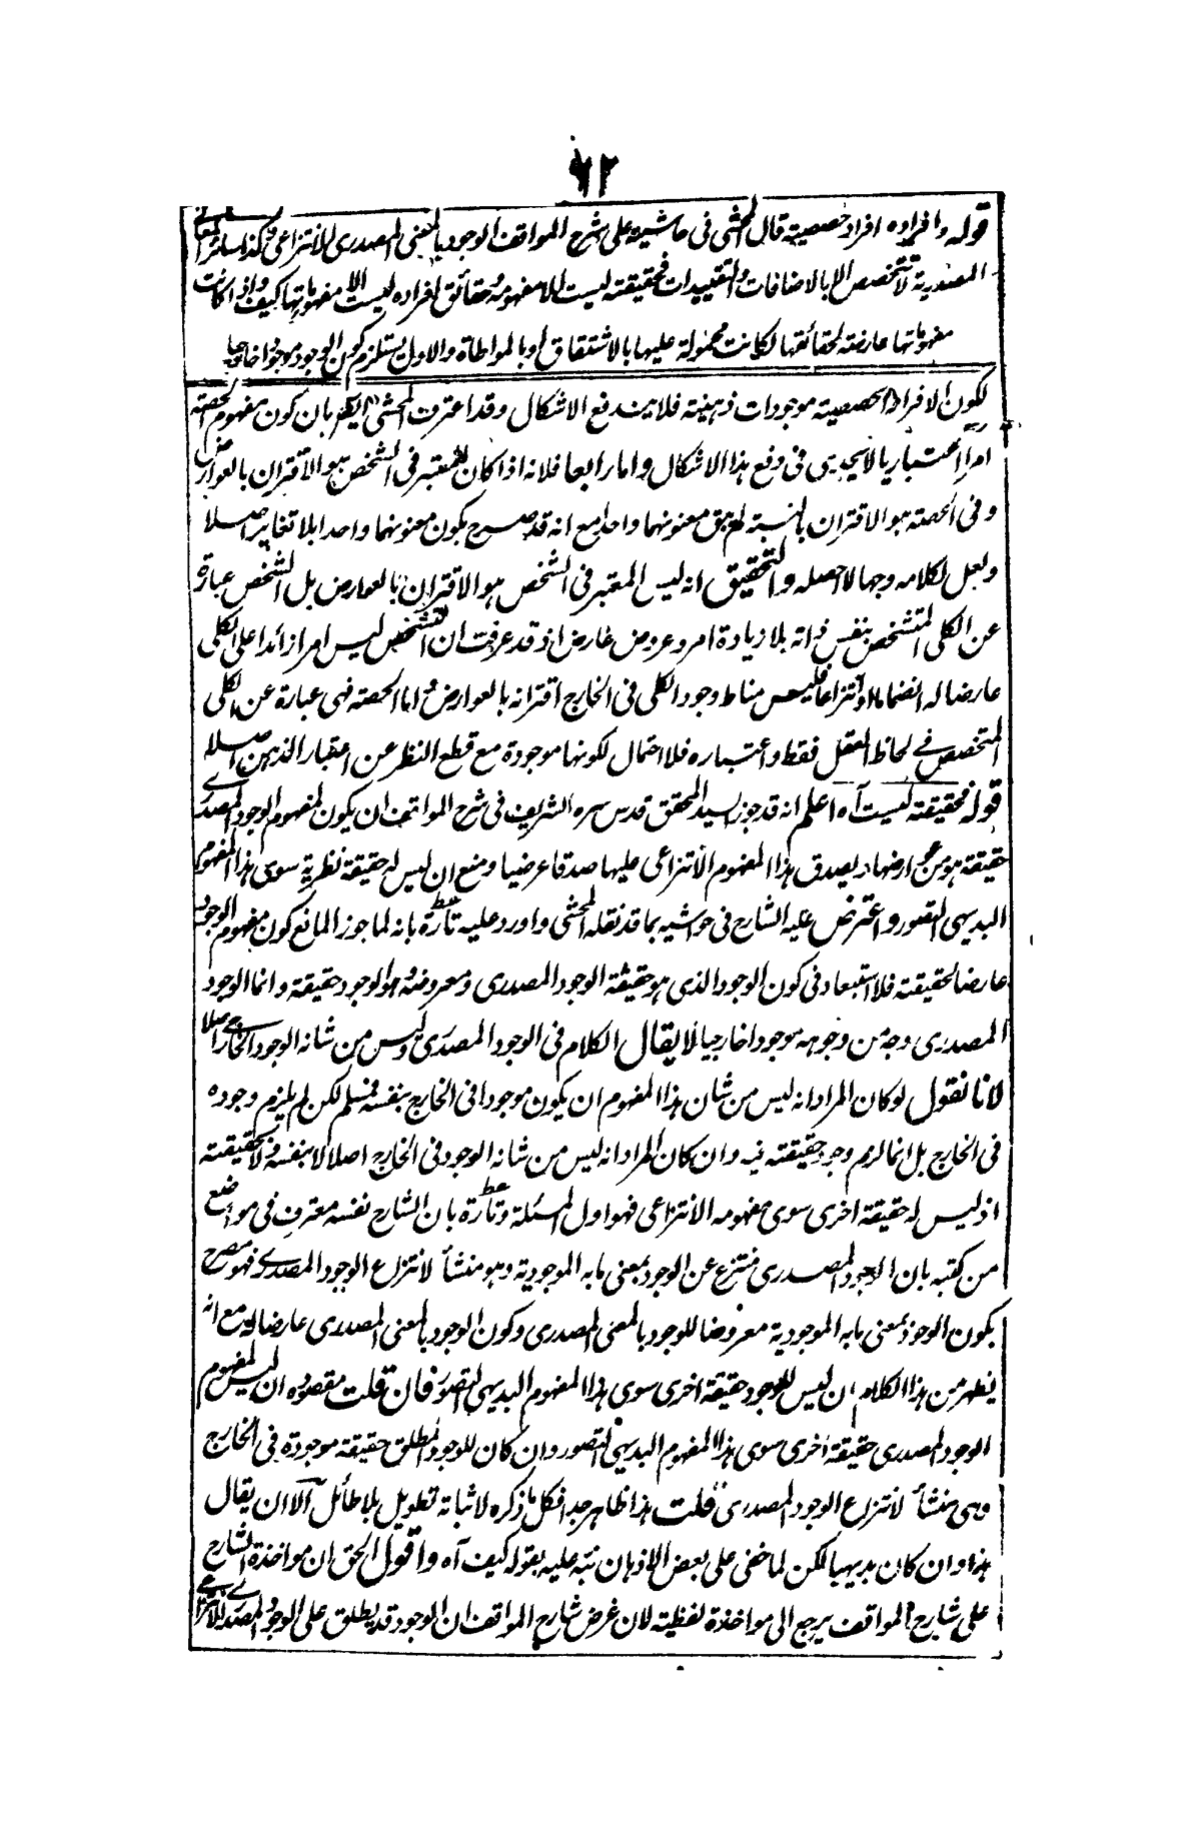 ٦٢
قوله وافراده افراد حصصية قال المحشى فى حاشيه على شرح المواقف الوجود بالمعنى المصدرى الانتزاعى وكذا سائر المعانى
المصدرية لا تتخصص الا بالاضافات والتقييدات فحقيقته ليست الا مفهومه وحقائق افراده ليست الا مفهوماتها كيف واذا كانت
مفهوماتها عارضة لحقائقها لكانت محمولة عليها بالاشتقاق او بالمواطاة والاول يستلزم كون الوجود موجودا خارجيا
لكون الافراد الحصصية موجودات ذهنية فلا يندفع الاشكال وقد اعترف المحشى ايضا بان كون مفهوم الحصة
امرا اعتباريا لا يجدى فى دفع هذا الاشكال واما رابعا فلانه اذا كان المعتبر فى الشخص هو الاقتران بالعوارض
وفى الحصة هو الاقتران بالنسبة لم يبق معنونهما واحدا مع انه قد صرح بكون معنونهما واحدا بلا تغاير اصلا
ولعل لكلامه وجها لا احصله والتحقيق انه ليس المعتبر فى الشخص هو الاقتران بالعوارض بل الشخص عبارة
عن الكلى المتشخص بنفس ذاته بلا زيادة امر وعروض عارض اذ قد عرفت ان التشخص ليس امرا زائدا على الكلى
عارضا له انضماما او انتزاعا فليس مناط وجود الكلى فى الخارج اقترانه بالعوارض واما الحصة فهى عبارة عن الكلى
المتخصص فى لحاظ العقل فقط واعتباره فلا احتمال لكونها موجودة مع قطع النظر عن اعتبار الذهن اصلا
قوله فحقيقته ليست آه اعلم انه قد جوز السيد المحقق قدس سره الشريف فى شرح المواقف ان يكون لمفهوم الوجود المصدرى
حقيقة هو من عوارضها ويصدق هذا المفهوم الانتزاعى عليها صدقا عرضيا ومنع ان ليس له حقيقة نظرية سوى هذا المفهوم
البديهى التصور واعترض عليه الشارح فى حواشيه بما قد نقله المحشى واورد عليه تارة بانه لما جوز المانع كون مفهوم الوجود
عارضا لحقيقته فلا استبعاد فى كون الوجود الذى هو حقيقة الوجود المصدرى ومعروضه هو الوجود حقيقة وانما الوجود
المصدرى وجه من وجوهه موجودا خارجيا لا يقال الكلام فى الوجود المصدرى وليس من شانه الوجود الخارجى اصلا
لانا نقول لو كان المراد انه ليس من شان هذا المفهوم ان يكون موجودا فى الخارج بنفسه فمسلم لكن لم يلزم وجوده
فى الخارج بل انما لزم وجود حقيقته فيه وان كان المراد انه ليس من شانه الوجود فى الخارج اصلا لا بنفسه ولا بحقيقته
اذ ليس له حقيقة اخرى سوى مفهومه الانتزاعى فهو اول المسئلة وتارة بان الشارح نفسه معترف فى مواضع
من كتبه بان الوجود المصدرى منتزع عن الوجود بمعنى ما به الموجودية وهو منشأ لانتزاع الوجود المصدرى فهو مصرح
بكون الوجود بمعنى ما به الموجودية معروضا للوجود بالمعنى المصدرى وكون الوجود بالمعنى المصدرى عارضا له مع انه
يظهر من هذا الكلام ان ليس للوجود حقيقة اخرى سوى هذا المفهوم البديهى التصور فان قلت مقصوده ان ليس لمفهوم
الوجود المصدرى حقيقة اخرى سوى هذا المفهوم البديهى التصور وان كان للوجود المطلق حقيقة موجودة فى الخارج
وهى منشأ لانتزاع الوجود المصدرى قلت هذا ظاهر جدا فكل ما ذكره لاثباته تطويل بلا طائل الا ان يقال
هذا وان كان بديهيا لكن لما خفى على بعض الاذهان نبه عليه بقوله كيف آه واقول الحق ان مواخذة الشارح
على شارح المواقف يرجع الى مواخذة لفظية لان غرض شارح المواقف ان الوجود قد يطلق على الوجود المصدرى الانتزاعى